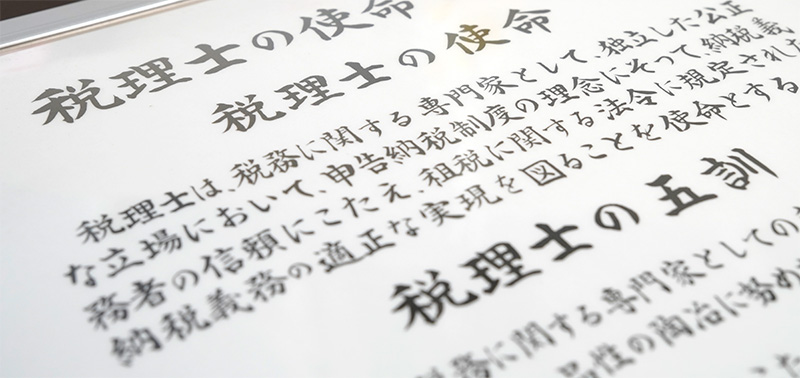 税理士の使命
税理士の使命
税理士は、税務に関する専門家として、独立した公正
な立場において、申告納税制度の理念にそって、納税義
務者の信頼にこたえ、租税に関する法令に規定された
納税義務の適正な実現を図ることを使命とする
税理士の五訓
税務に関する専門家としての
品性の陶冶に努め